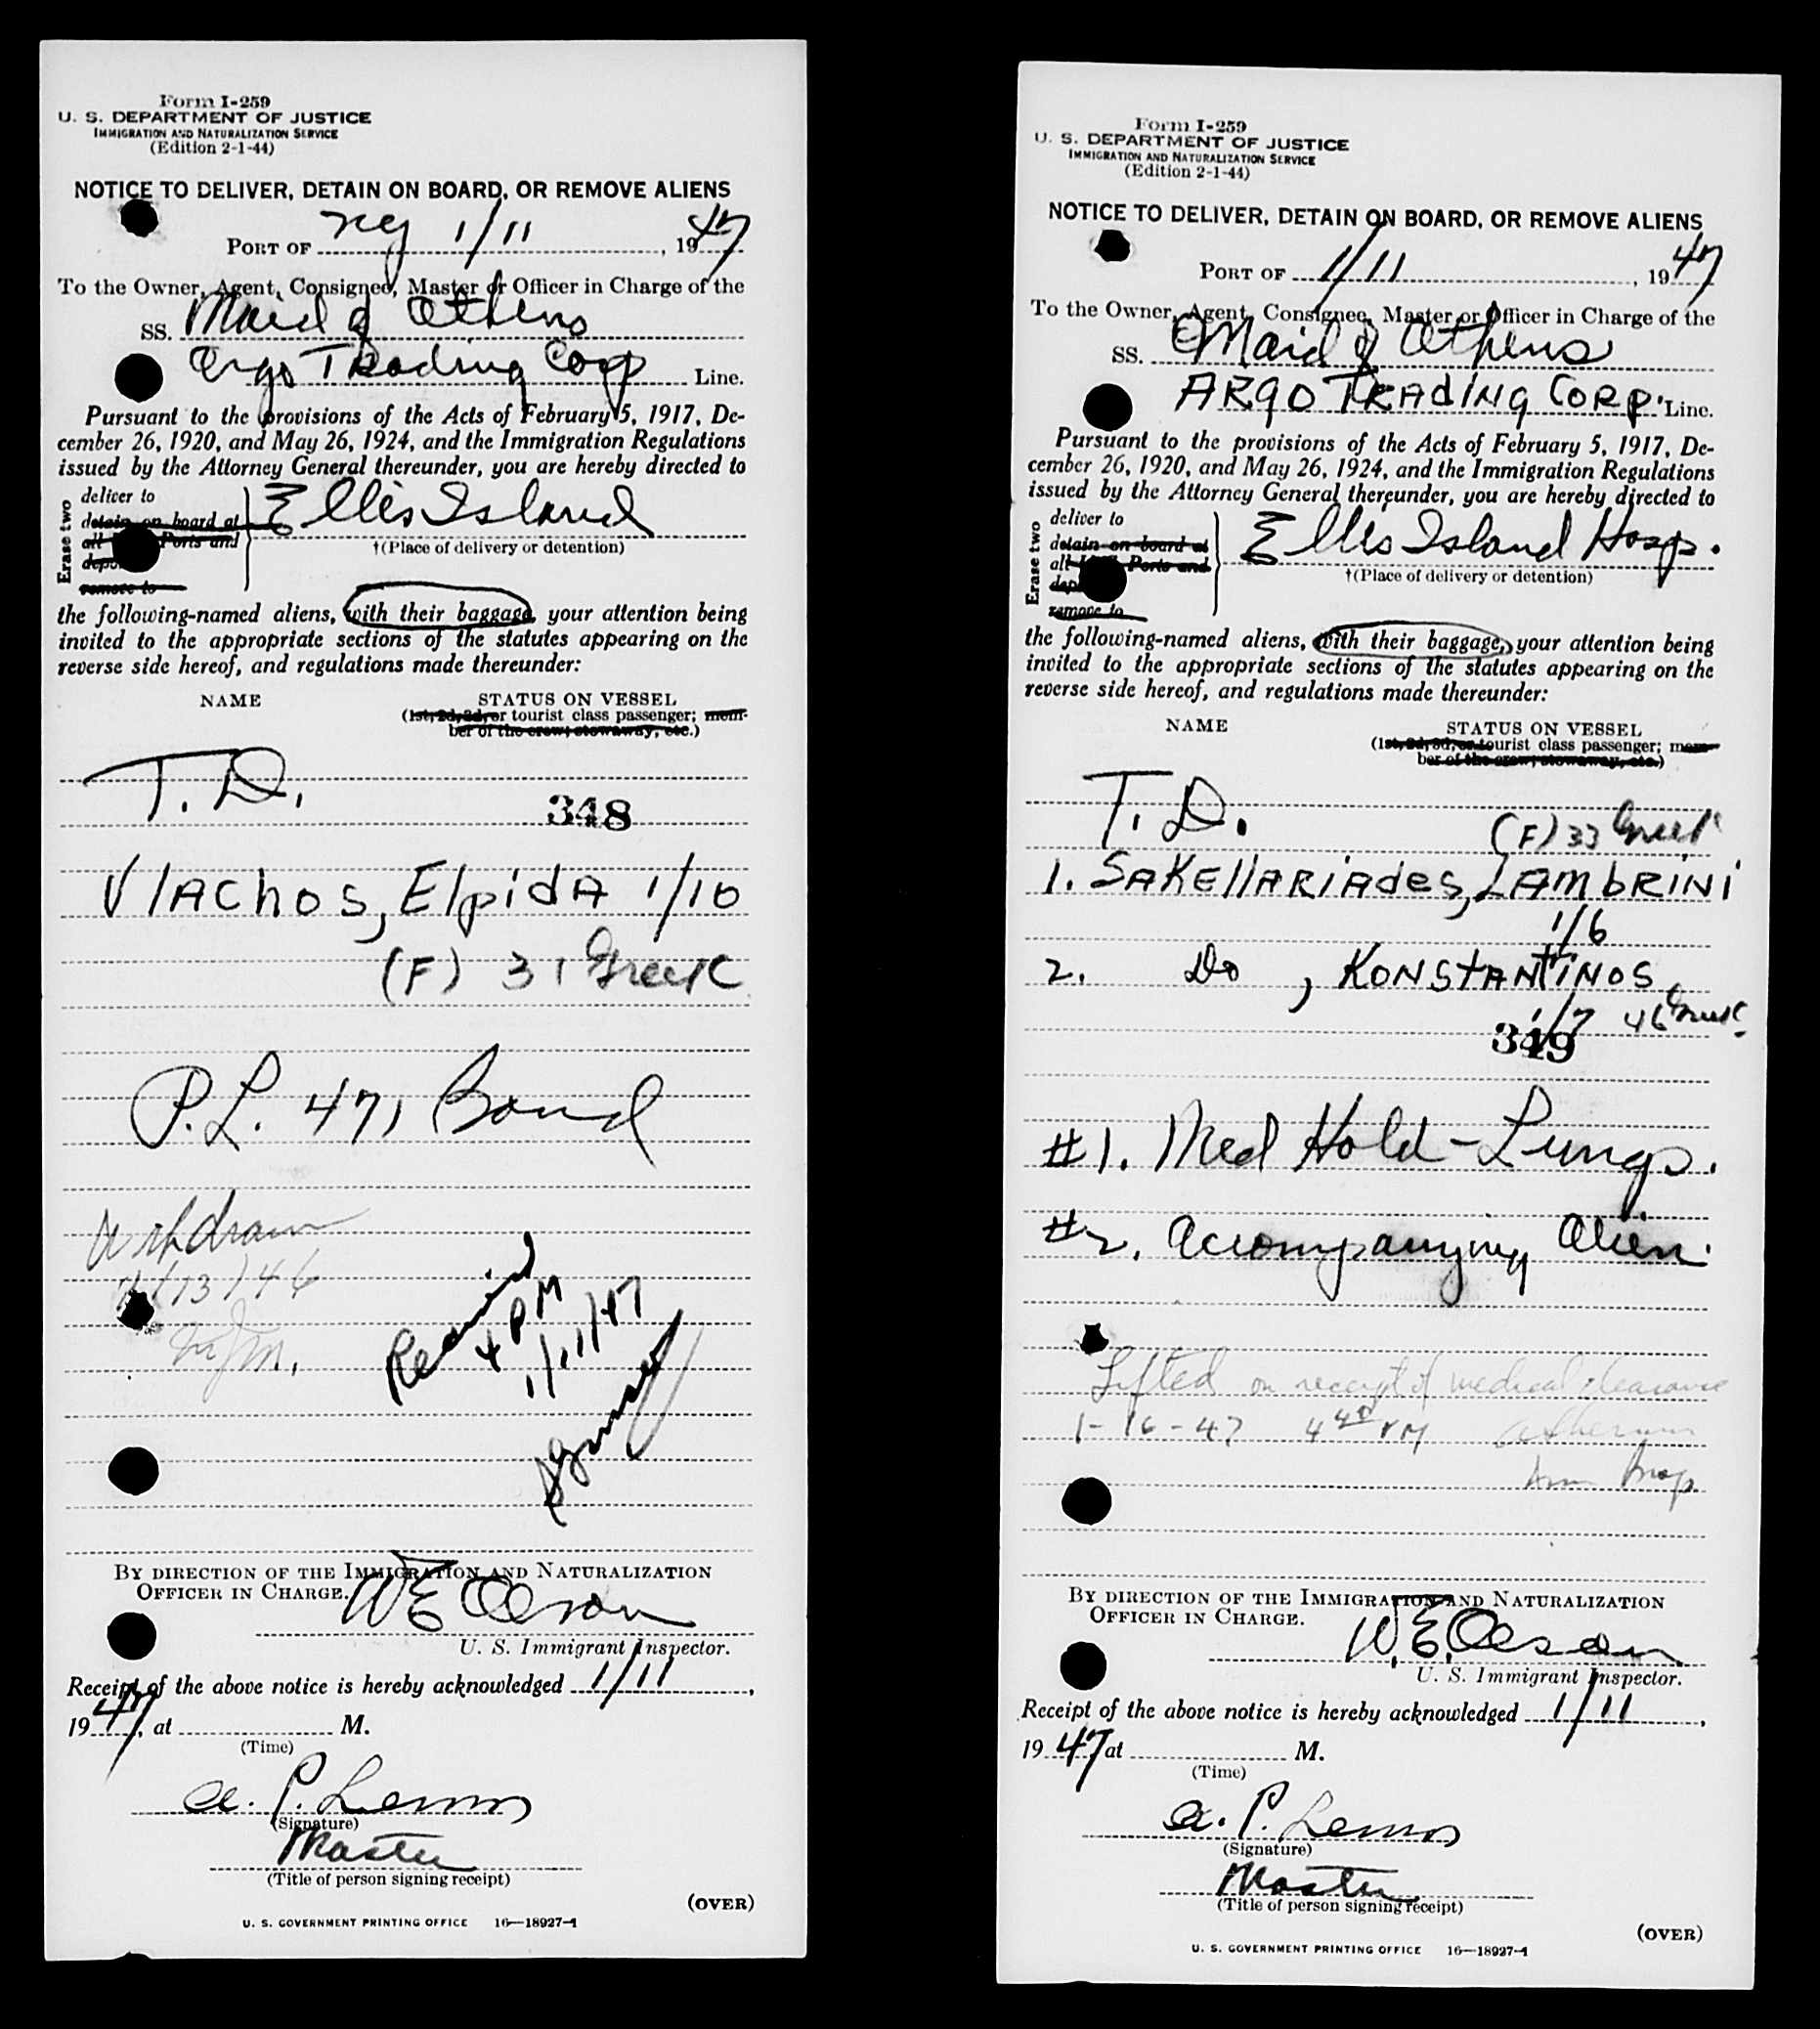 Form I-259
U. S. DEPARTMENT OF JUSTICE
IMMIGRATION AND NATURALIZATION SERVICE
(Edition 2-1-44)
NOTICE TO DELIVER, DETAIN ON BOARD, OR REMOVE ALIENS
PORT OF NY 1/11, 1947
To the Owner, Agent, Consignee, Master or Officer in Charge of the
SS. Maid of Athens
Argo Trading Corp Line.
Pursuant to the provisions of the Acts of February 5, 1917, De-
cember 26, 1920, and May 26, 1924, and the Immigration Regulations
issued by the Attorney General thereunder, you are hereby directed to
Erase two
deliver to
detain on board at
all Ports and
remove to
Ellis Island
†(Place of delivery or detention)
the following-named aliens, with their baggage, your attention being
invited to the appropriate sections of the statutes appearing on the
reverse side hereof, and regulations made thereunder:
NAME STATUS ON VESSEL
(1st, 2d, 3d, or tourist class passenger; mem-
ber of the crew; stowaway, etc.)
T. D.
348
VlAChoS, ElpidA 1/10
(F) 31 Greek
P.L. 471 Bond
Withdrawn
13/46
Received
4 PM
1/11/47
BY DIRECTION OF THE IMMIGRATION AND NATURALIZATION
OFFICER IN CHARGE.
W E Olson
U. S. Immigrant Inspector.
Receipt of the above notice is hereby acknowledged 1/11,
1947, at M.
(Time)
A. P. Lemos
(Signature)
Master
(Title of person signing receipt)
(OVER)
U. S. GOVERNMENT PRINTING OFFICE 16—18927-1
Form I-259
U. S. DEPARTMENT OF JUSTICE
IMMIGRATION AND NATURALIZATION SERVICE
(Edition 2-1-44)
NOTICE TO DELIVER, DETAIN ON BOARD, OR REMOVE ALIENS
PORT OF 1/11, 1947
To the Owner, Agent, Consignee, Master or Officer in Charge of the
SS. Maid of Athens
ARGO TRADING CORP. Line.
Pursuant to the provisions of the Acts of February 5, 1917, De-
cember 26, 1920, and May 26, 1924, and the Immigration Regulations
issued by the Attorney General thereunder, you are hereby directed to
Erase two
deliver to
detain on board at
all Ports and
remove to
Ellis Island Hosp.
†(Place of delivery or detention)
the following-named aliens, with their baggage, your attention being
invited to the appropriate sections of the statutes appearing on the
reverse side hereof, and regulations made thereunder:
NAME STATUS ON VESSEL
(1st, 2d, 3d, or tourist class passenger; mem-
ber of the crew; stowaway, etc.)
T. D.
(F) 33 Greek
1. SAKEllARiAdes, LAMbRINi
1/6
2. Do, KONSTANTiNOS
1/7 46 Greek
349
#1. Med Hold - Lungs.
#2. Accompanying Alien.
Lifted on receipt of medical clearance
1-16-47 4 40 PM
Insp.
BY DIRECTION OF THE IMMIGRATION AND NATURALIZATION
OFFICER IN CHARGE.
W. E. Olson
U. S. Immigrant Inspector.
Receipt of the above notice is hereby acknowledged 1/11,
1947 at M.
(Time)
A. P. Lemos
(Signature)
Master
(Title of person signing receipt)
(OVER)
U. S. GOVERNMENT PRINTING OFFICE 16—18927-1